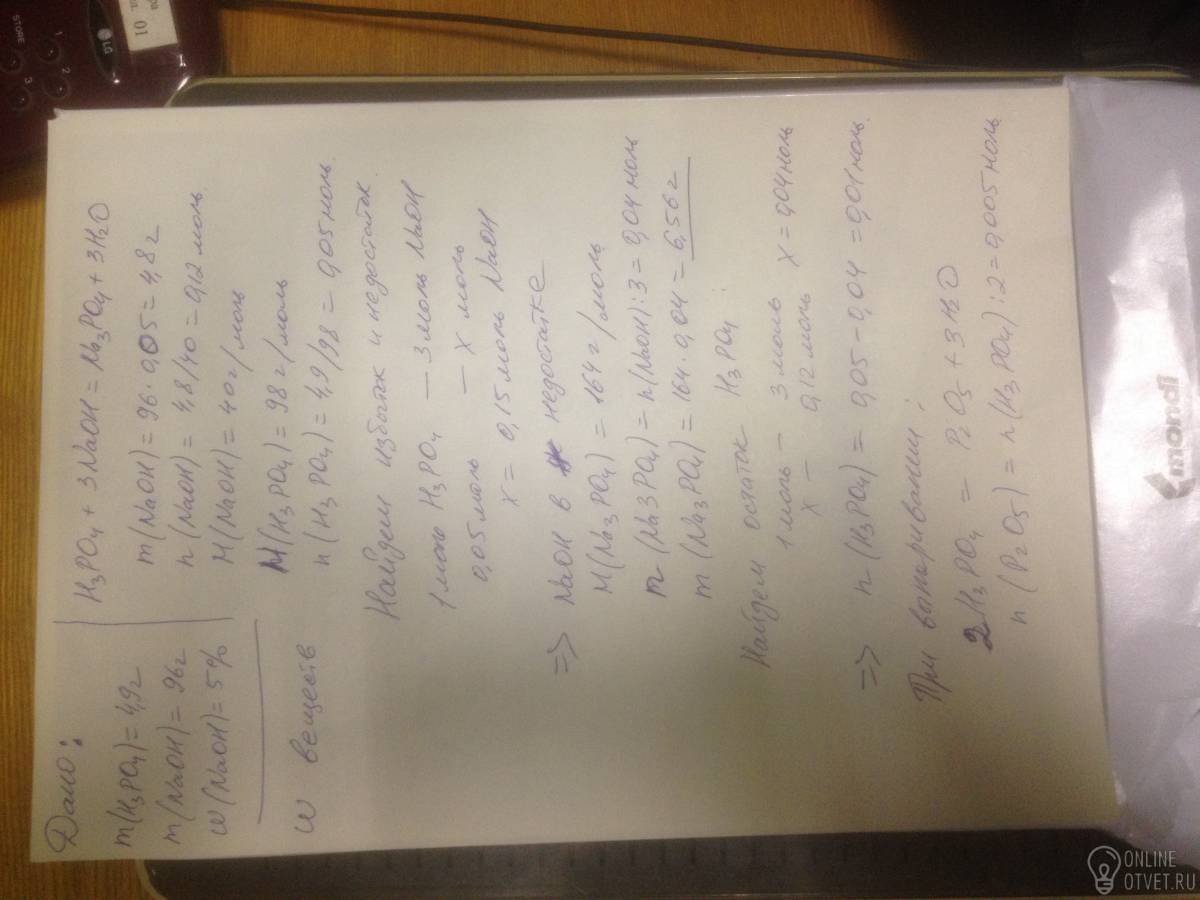 Дано:
m(H₃PO₄) = 4,9г
m(NaOH) = 96г
w(NaOH) = 5%
w веществ
H₃PO₄ + 3NaOH = Na₃PO₄ + 3H₂O
m(NaOH) = 96 · 0,05 = 4,8г
n(NaOH) = 4,8/40 = 0,12 моль
M(NaOH) = 40г/моль
M(H₃PO₄) = 98г/моль
n(H₃PO₄) = 4,9/98 = 0,05 моль
Найдем избыток и недостаток
1 моль H₃PO₄ — 3 моль NaOH
0,05 моль — x моль
x = 0,15 моль NaOH
=> NaOH в недостатке
M(Na₃PO₄) = 164г/моль
n(Na3PO₄) = n(NaOH):3 = 0,04 моль
m(Na₃PO₄) = 164 · 0,04 = 6,56г
Найдем остаток H₃PO₄:
1 моль — 3 моль
x — 0,12 моль x = 0,04 моль
=> n(H₃PO₄) = 0,05 - 0,04 = 0,01 моль
При выпаривании:
2H₃PO₄ = P₂O₅ + 3H₂O
n(P₂O₅) = n(H₃PO₄):2 = 0,005 моль
mondi
LG
STORE
1
2
3
01
ONLINE
OTVET.RU